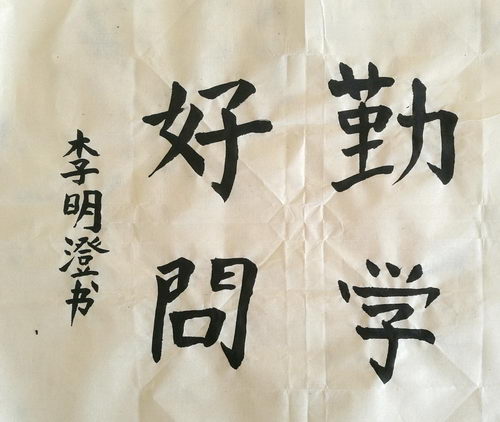 勤学
好問
李明澄书